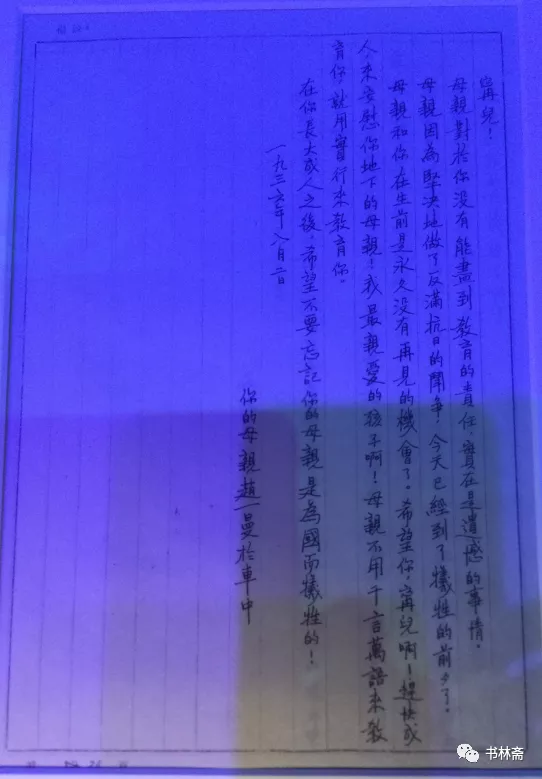 甯兒!
母親對於你沒有能盡到教育的責任,實在是遺憾的事情。
母親因為堅決地做了反滿抗日的鬥爭,今天已經到了犧牲的前夕了。
母親和你在生前是永久沒有再見的機會了。希望你,甯兒啊!趕快成
人,來安慰你地下的母親!我最親愛的孩子啊!母親不用千言萬語來教
育你,就用實行來教育你。
在你長大成人之後,希望不要忘記你的母親是為國而犧牲的!
一九三六年八月二日
你的母親趙一曼於車中
书林斋